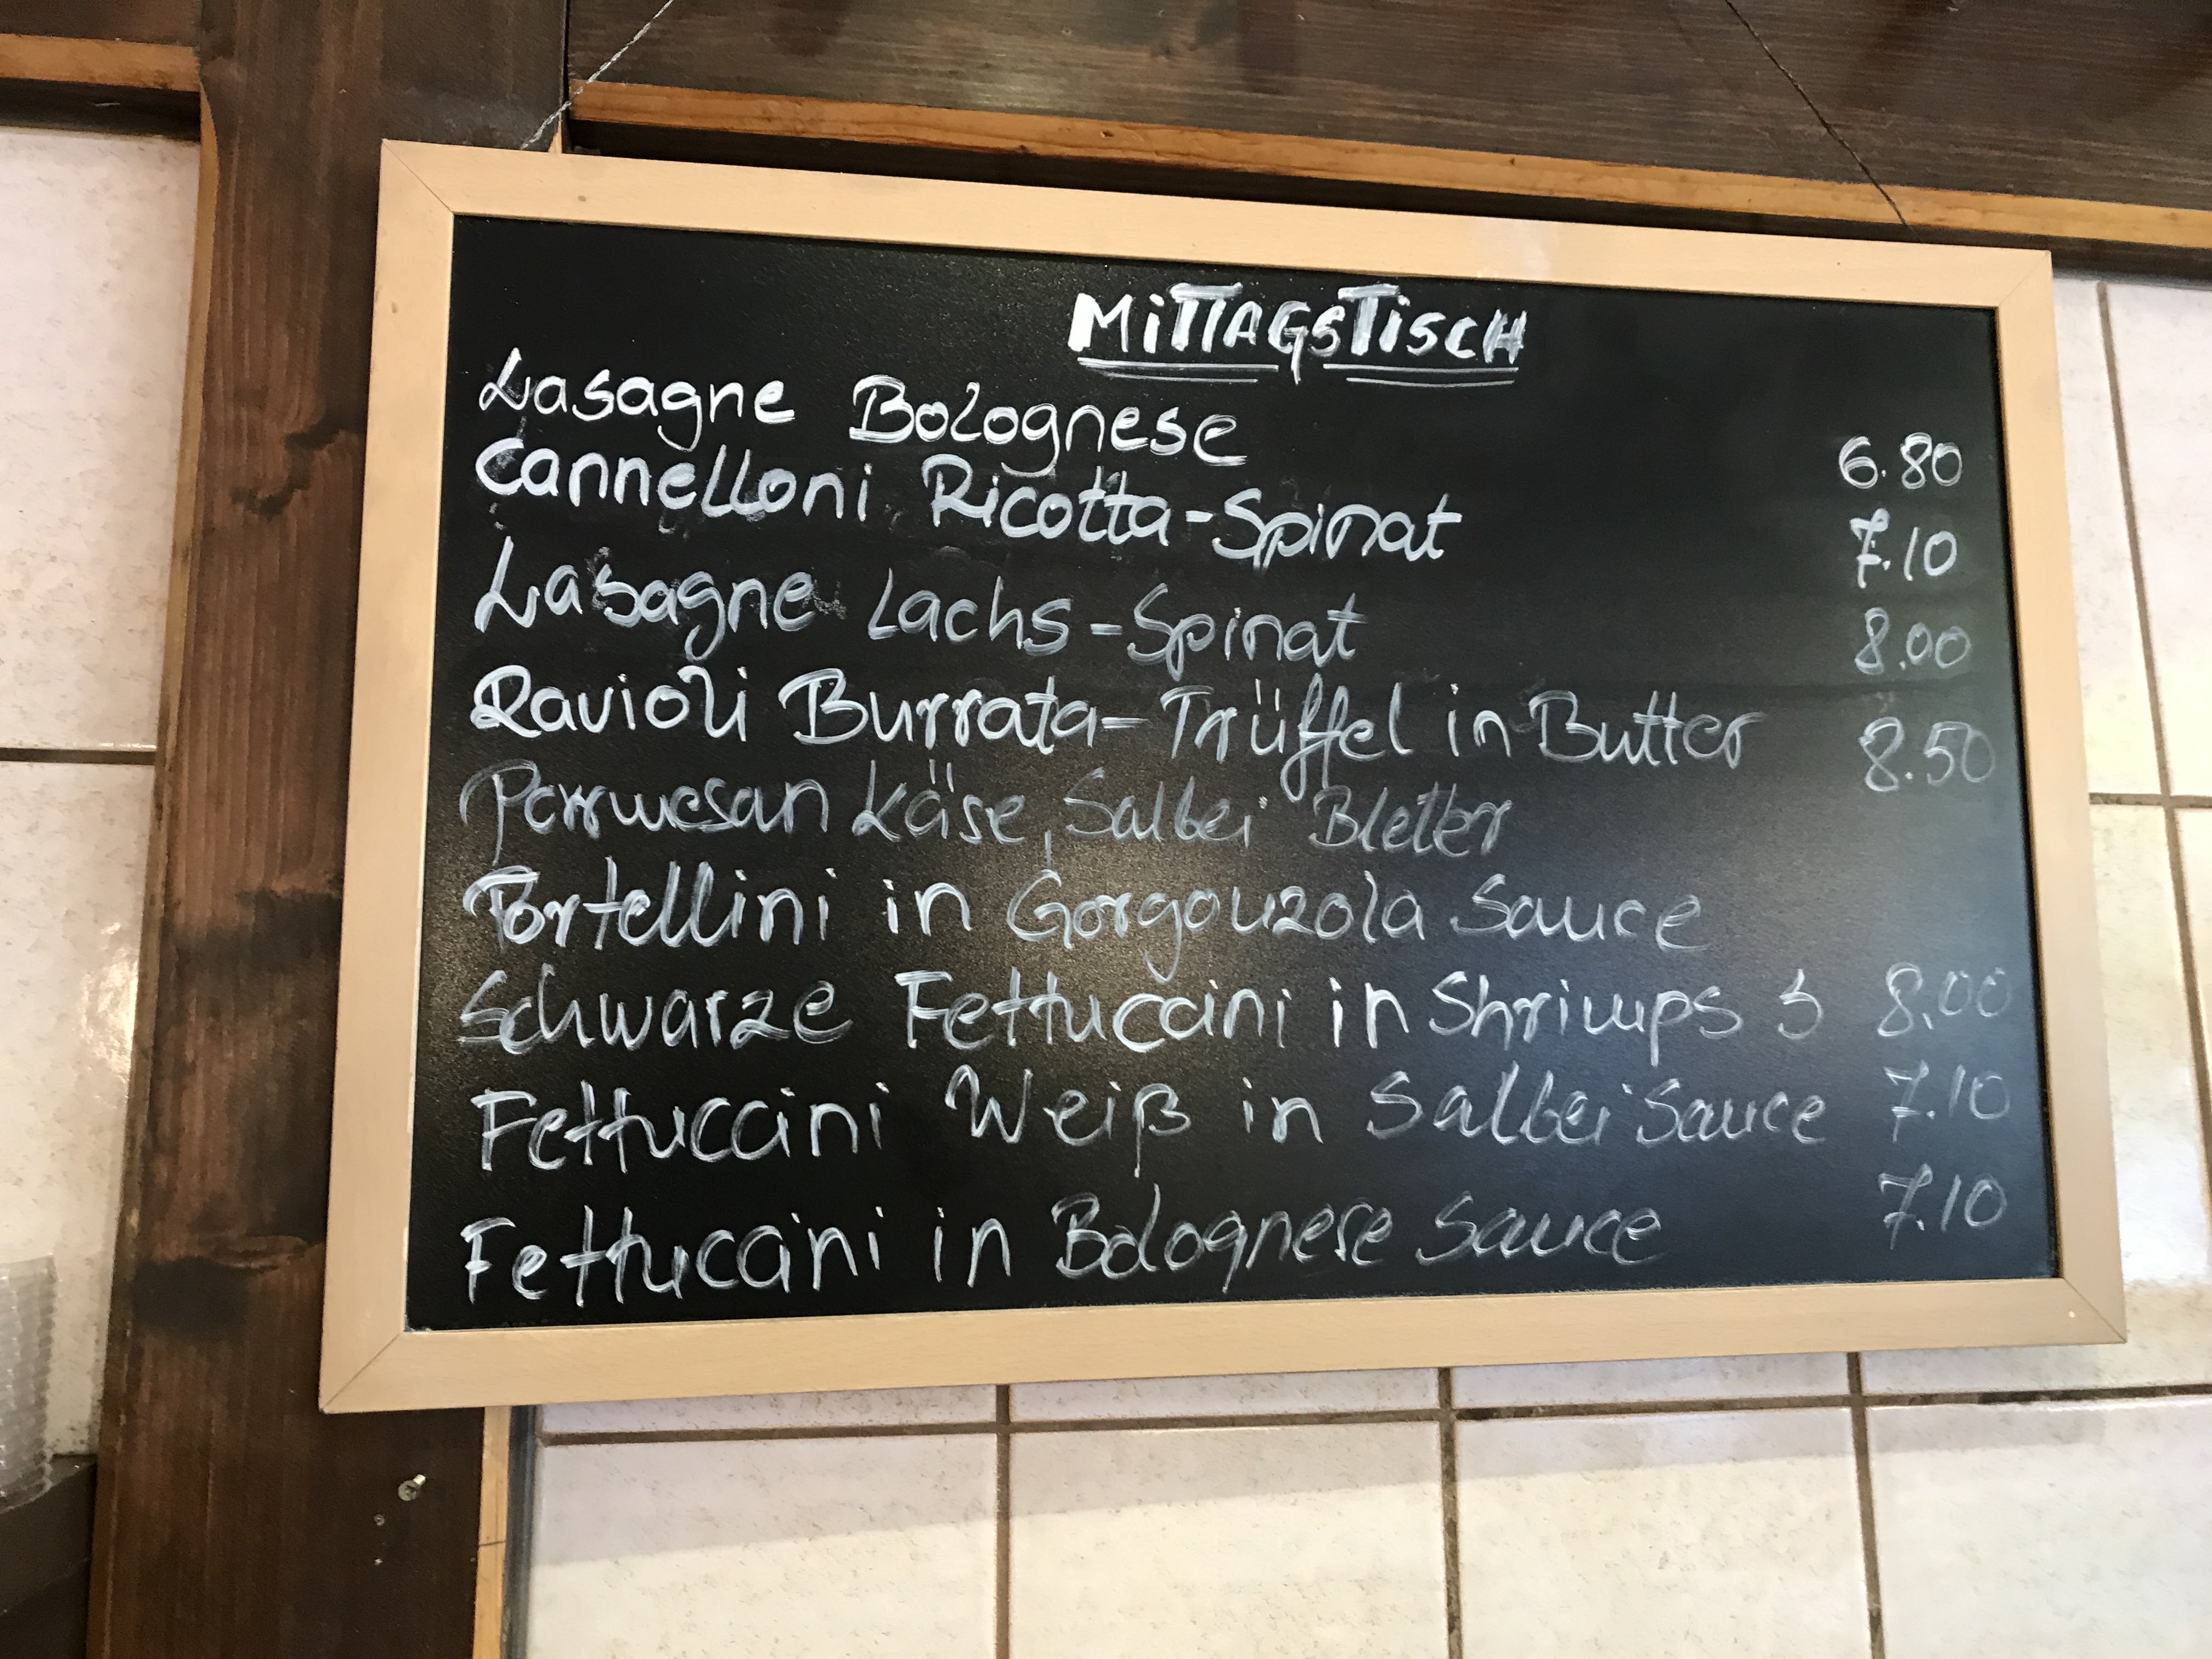 MiTTAGSTiSCH
Lasagne Bolognese 6.80
Cannelloni Ricotta-Spinat 7.10
Lasagne Lachs-Spinat 8.00
Ravioli Burrata-Trüffel in Butter 8.50
Parmesan Käse, Salbei Bletter
Tortellini in Gorgonzola Sauce
Schwarze Fettuccini in Shrimps S 8.00
Fettuccini Weiß in Salbei Sauce 7.10
Fettuccini in Bolognese Sauce 7.10